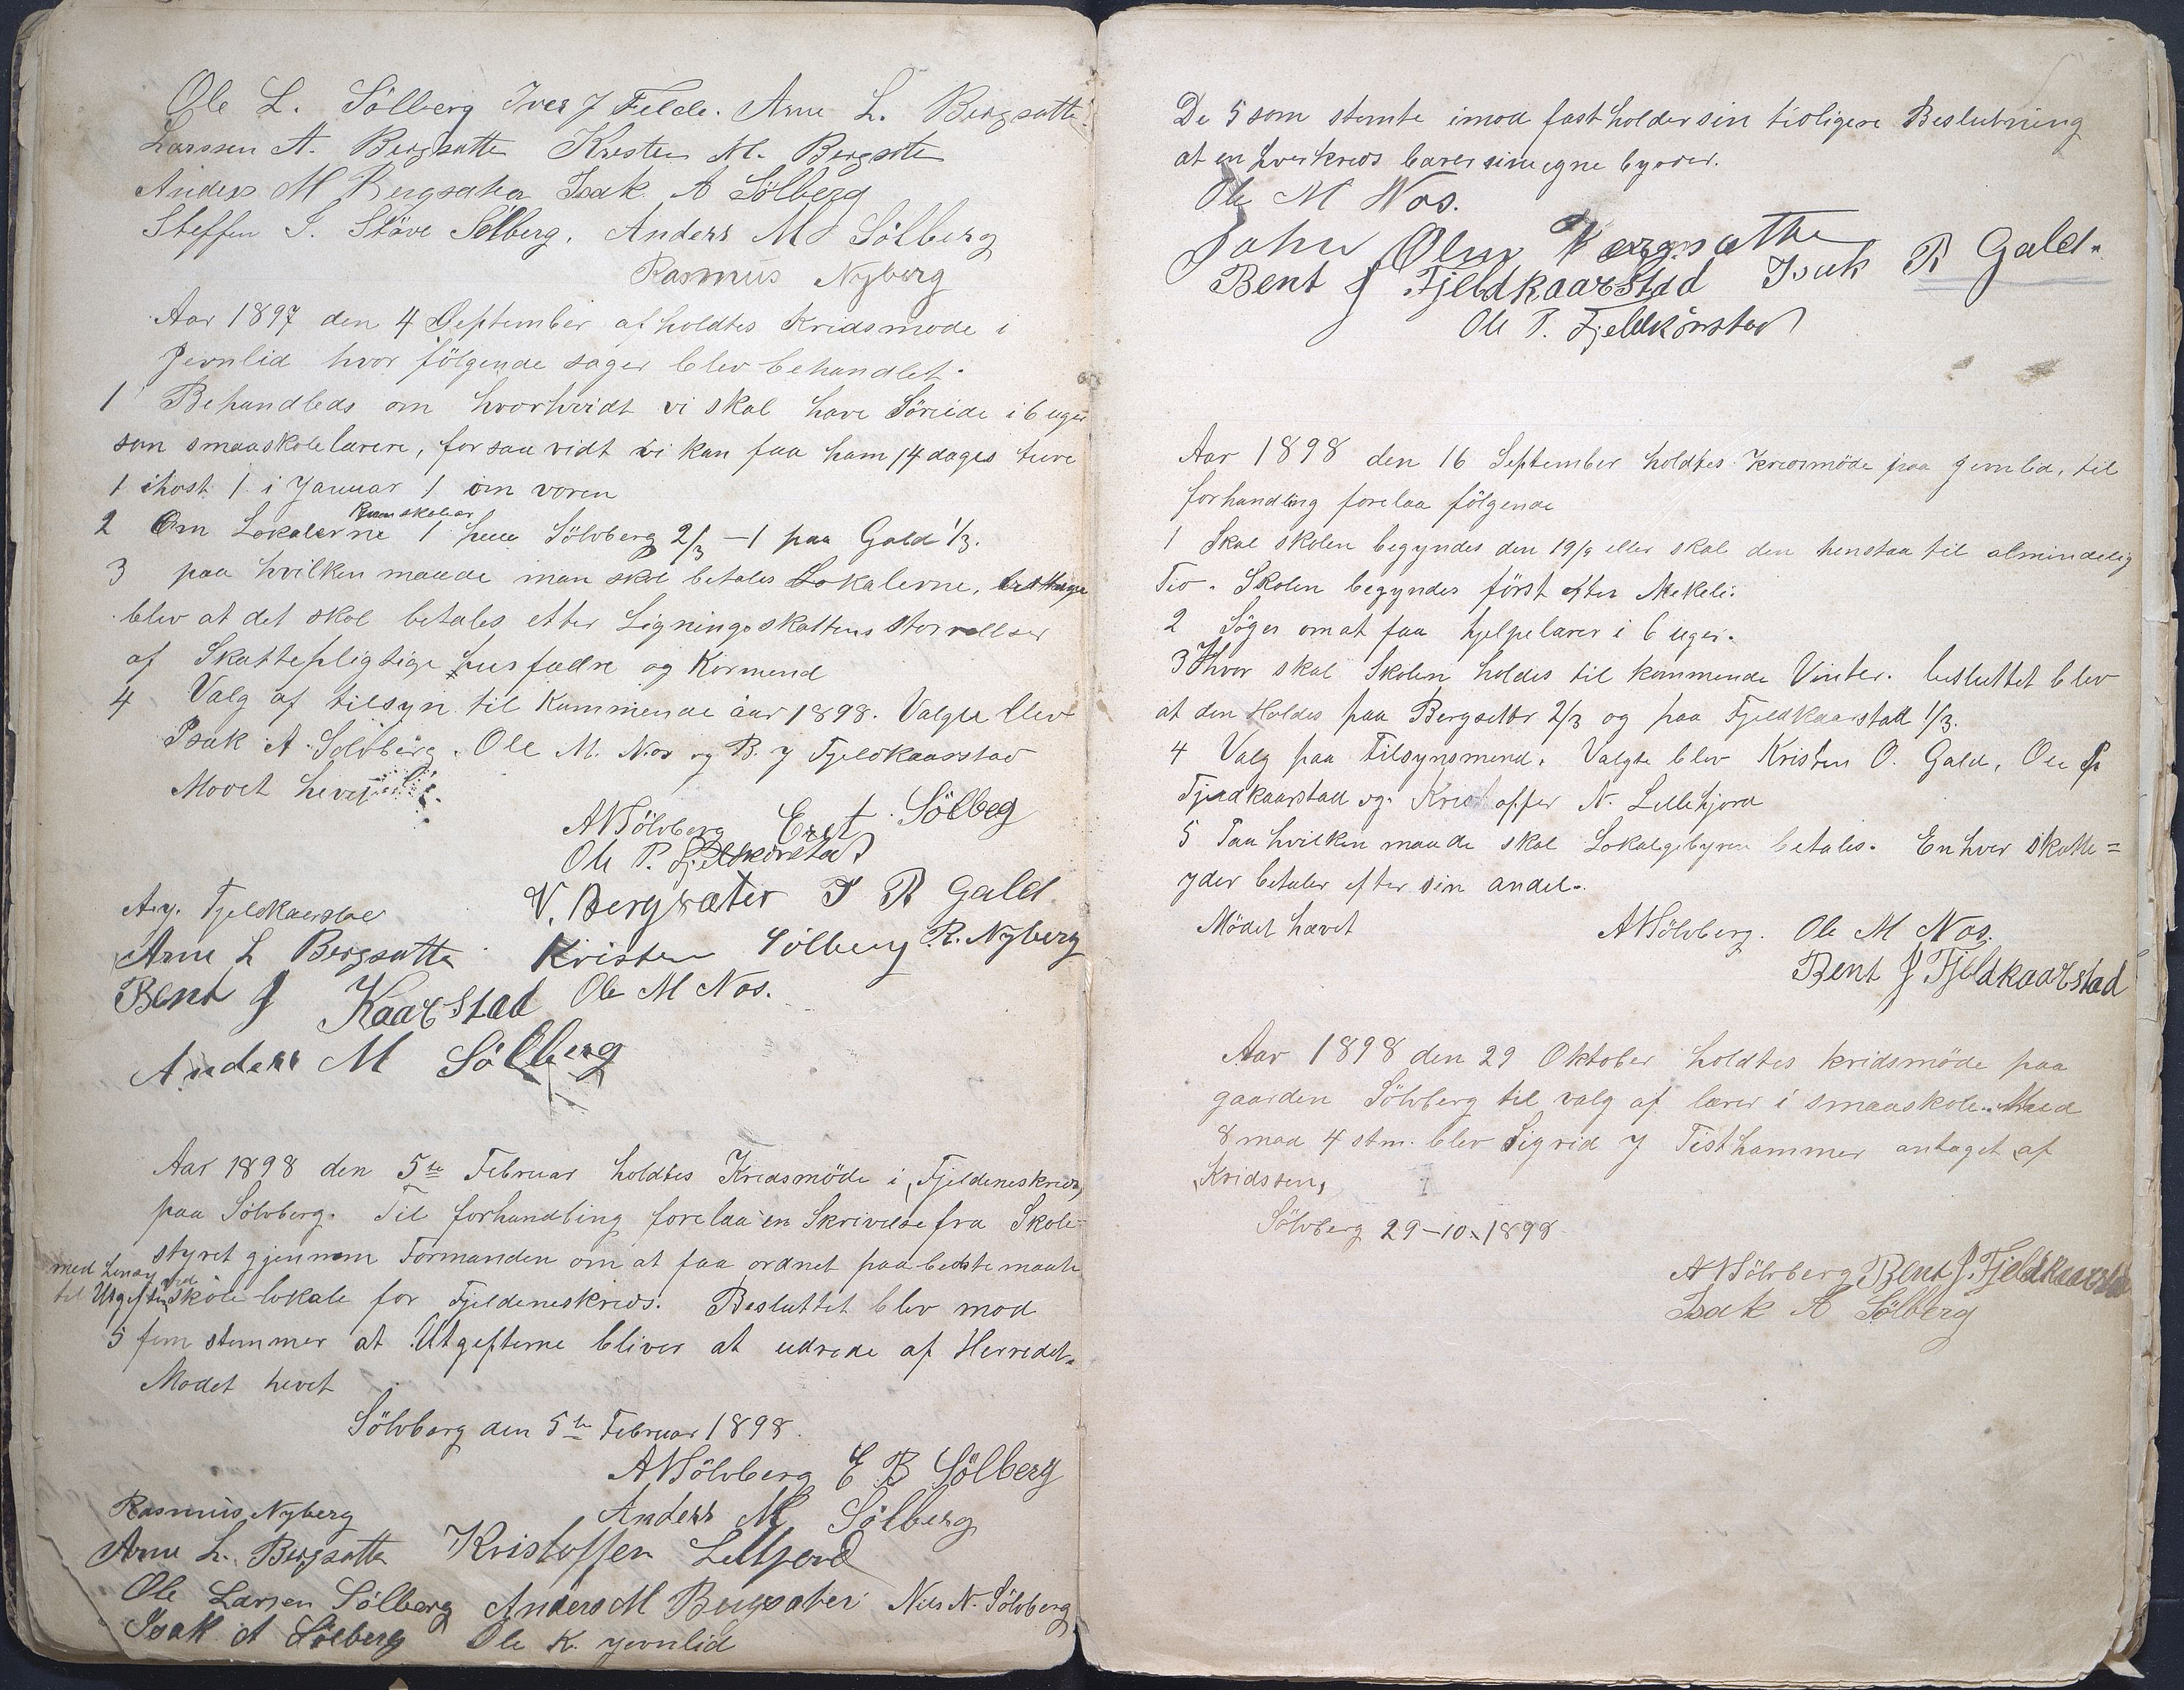 Ole L. Sölberg Iver J Felde. Arne L. Bergsatte.
Larssen A. Bergsatte Kristen M. Bergsatte
Anders M Bergsater Isak A Sölberg
Steffen S. Stöve Sölberg. Anders M Sölberg
Rasmus Nyberg
Aar 1897 den 4 September afholdtes Kridsmøde i
Jernlid hvor fölgende sager blev behandlet.
1 Behandleds om hvorhvidt vi skal have Söreide i 6 uger
som smaaskolelærere, forsaavidt vi kan faa ham 14 dages ture
1 ihøst 1 i Januar 1 om voren
2 Om Lokalerne 1 paa Sölvberg 2/3 – 1 paa Gald 1/3.
3 paa hvilken maade man skol betales Lokalerne,
blev at det skol betales etter Ligningsskattens storrellser
af Skattepligtige husfædre og Kormend
4 Valg af tilsyn til Kommende aar 1898. Valgte blev
Isak A. Solvberg. Ole M. Nos og B. J Fjeldkaarstad
Movet hevet
A Sölvberg Sölbeg
Ole P. Fjeldkörstad
A. J. Fjeldkaarstad V. Bergsæter I R Gald
Arne L Bergsatte Kristen Sölberg R. Nyberg
Bent J Kaarstad Ole M Nos.
Anders M Sölberg
Aar 1898 den 5te Februar holdtes Kredsmöde i Fjeldeneskreds
paa Sölvberg. Til forhandling forelaa en Skrivelse fra Skole-
styret gjennem Formanden om at faa ordnet paa bedste maate
med Hensyn
til Utgifter ved
skole lokale for Fjeldeneskreds. Besluttet blev mod
5 fem stemmer at Utgifterne bliver at udrede af Herredet.
Modet hevet
Sölvberg den 5te Februar 1898.
A Sölvberg E B Sölberg
Rasmus Nyberg Anders M Sölberg
Arne L. Bergsatte Kristoffer Lillfjord
Ole Larsen Sölberg Anders M Bergsater Nils N. Sölvberg
Isak A Sölberg Ole K. Jernlid
De 5 som stemte imod fastholder sin tidligere Beslutning
at en hver kreds bærer sine egne byrder.
Ole M Nos.
John Olsn Bergsatte
Bent J Fjeldkaarstad Isak R Gald.
Ole P. Fjeldkörstad
Aar 1898 den 16 September holdtes Kredsmöde paa Jernlid, til
forhandling forelaa fölgende
1 Skal skolen begyndes den 19/9 eller skal den henstaa til almindelig
Tid. Skolen begyndes först efter Mekeli.
2 Söges om at faa hjelpelærer i 6 uger.
3 Hvor skal Skolen holdes til kommende Vinter. besluttet blev
at den Holdes paa Bergsetbr 2/3 og paa Fjeldkaarstad 1/3.
4 Valg paa Tilsynsmend. Valgte blev Kristen O. Gald, Ole P
Fjeldkaarstad og Kristoffer N. Lillefjord
5 Paa hvilken maade skal Lokalgebyrene betales. En hver skatte=
yder betaler efter sin andel.
Mödet hævet A Sölvberg. Ole M Nos.
Bent J Fjeldkaarstad
Aar 1898 den 29 Oktober holdtes kridsmöde paa
gaarden Sölvberg til valg af lærer i smaaskole. Med
8 mod 4 stm. blev Sigrid J Tisthammer antaget af
Kridssen,
Sölvberg 29–10.1898
A Sölvberg Bent J. Fjeldkaarstad
Isak A Sölberg